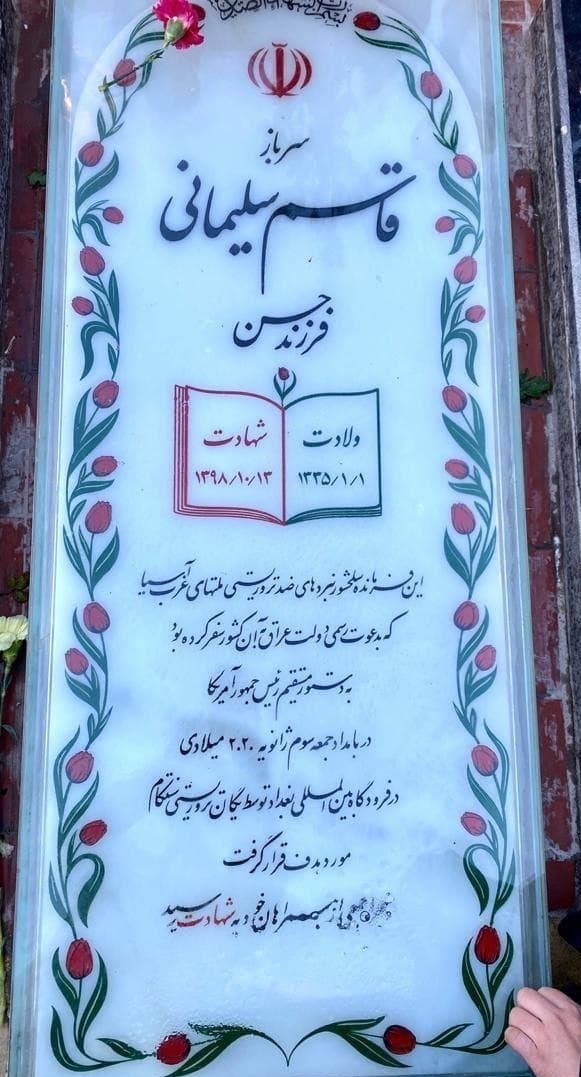 بسم رب الشهداء والصدیقین
سرباز
قاسم سلیمانی
فرزند حسن
ولادت
۱۳۳۵/۱/۱
شهادت
۱۳۹۸/۱۰/۱۳
این فرمانده سلحشور نبردهای ضد تروریستی ملتهای غرب آسیا
که بدعوت رسمی دولت عراق به آن کشور سفر کرده بود
به دستور مستقیم رئیس جمهور آمریکا
در بامداد جمعه سوم ژانویه ۲۰۲۰ میلادی
در فرودگاه بین المللی بغداد توسط یگان تروریستی سنتکام
مورد هدف قرار گرفت
از همراهان خود به شهادت رسید